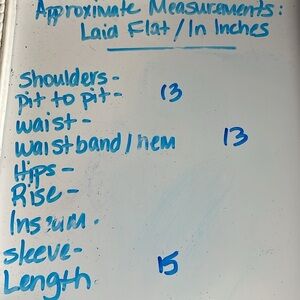 Approximate Measurements:
Laia Flat/In Inches
Shoulders-
pit to pit- 13
waist-
waistband/hem 13
Hips-
Rise-
Inseam.
sleeve-
Length 15